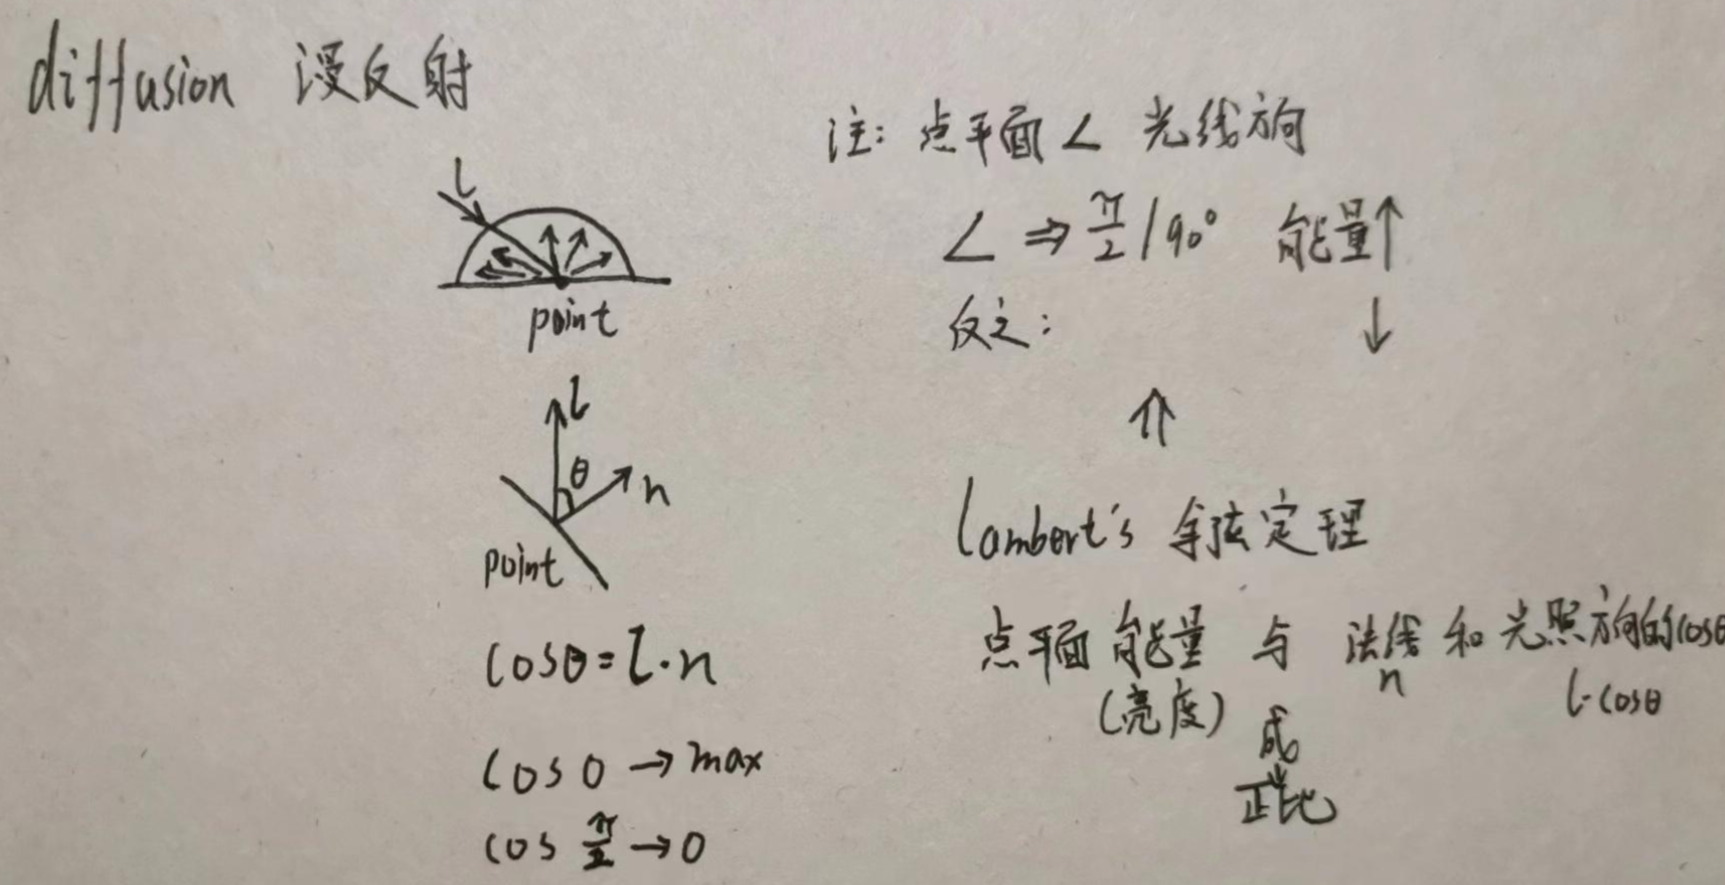 diffusion 漫反射
l
point
l
θ
n
point
cosθ=l·n
cos 0 → max
cos π/2 → 0
注: 点平面 ∠ 光线方向
∠ ⇒ π/2 / 90° 能量↑
反之: ↓
⇑
lambert's 余弦定理
点平面 能量 与 法线 和 光照方向的cosθ
(亮度) n l·cosθ
成
正比